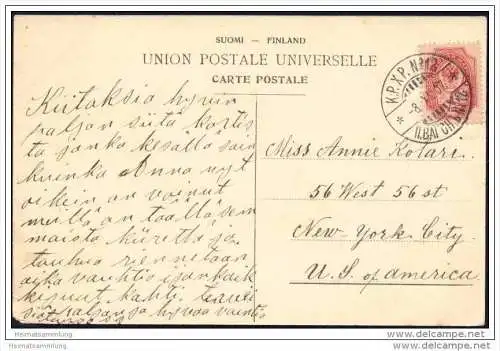 SUOMI — FINLAND
UNION POSTALE UNIVERSELLE
CARTE POSTALE
K.P.X.P. No 12
Kiitoksia hyvin
paljon siitä kortis
ta jonka kesällä sain
kuinka Anna nyt
oikein on voinut
meillä on täällä sem
maista kiirettä ja
touhua rennetaan
aika vauhtia
kesuat
paljon ja hyvää vointo
Miss Annie Kotari.
56 West 56 st
New-York City.
U.S. of america
Heimatsammlung
Heimatsammlung.de
www.delcampe.net